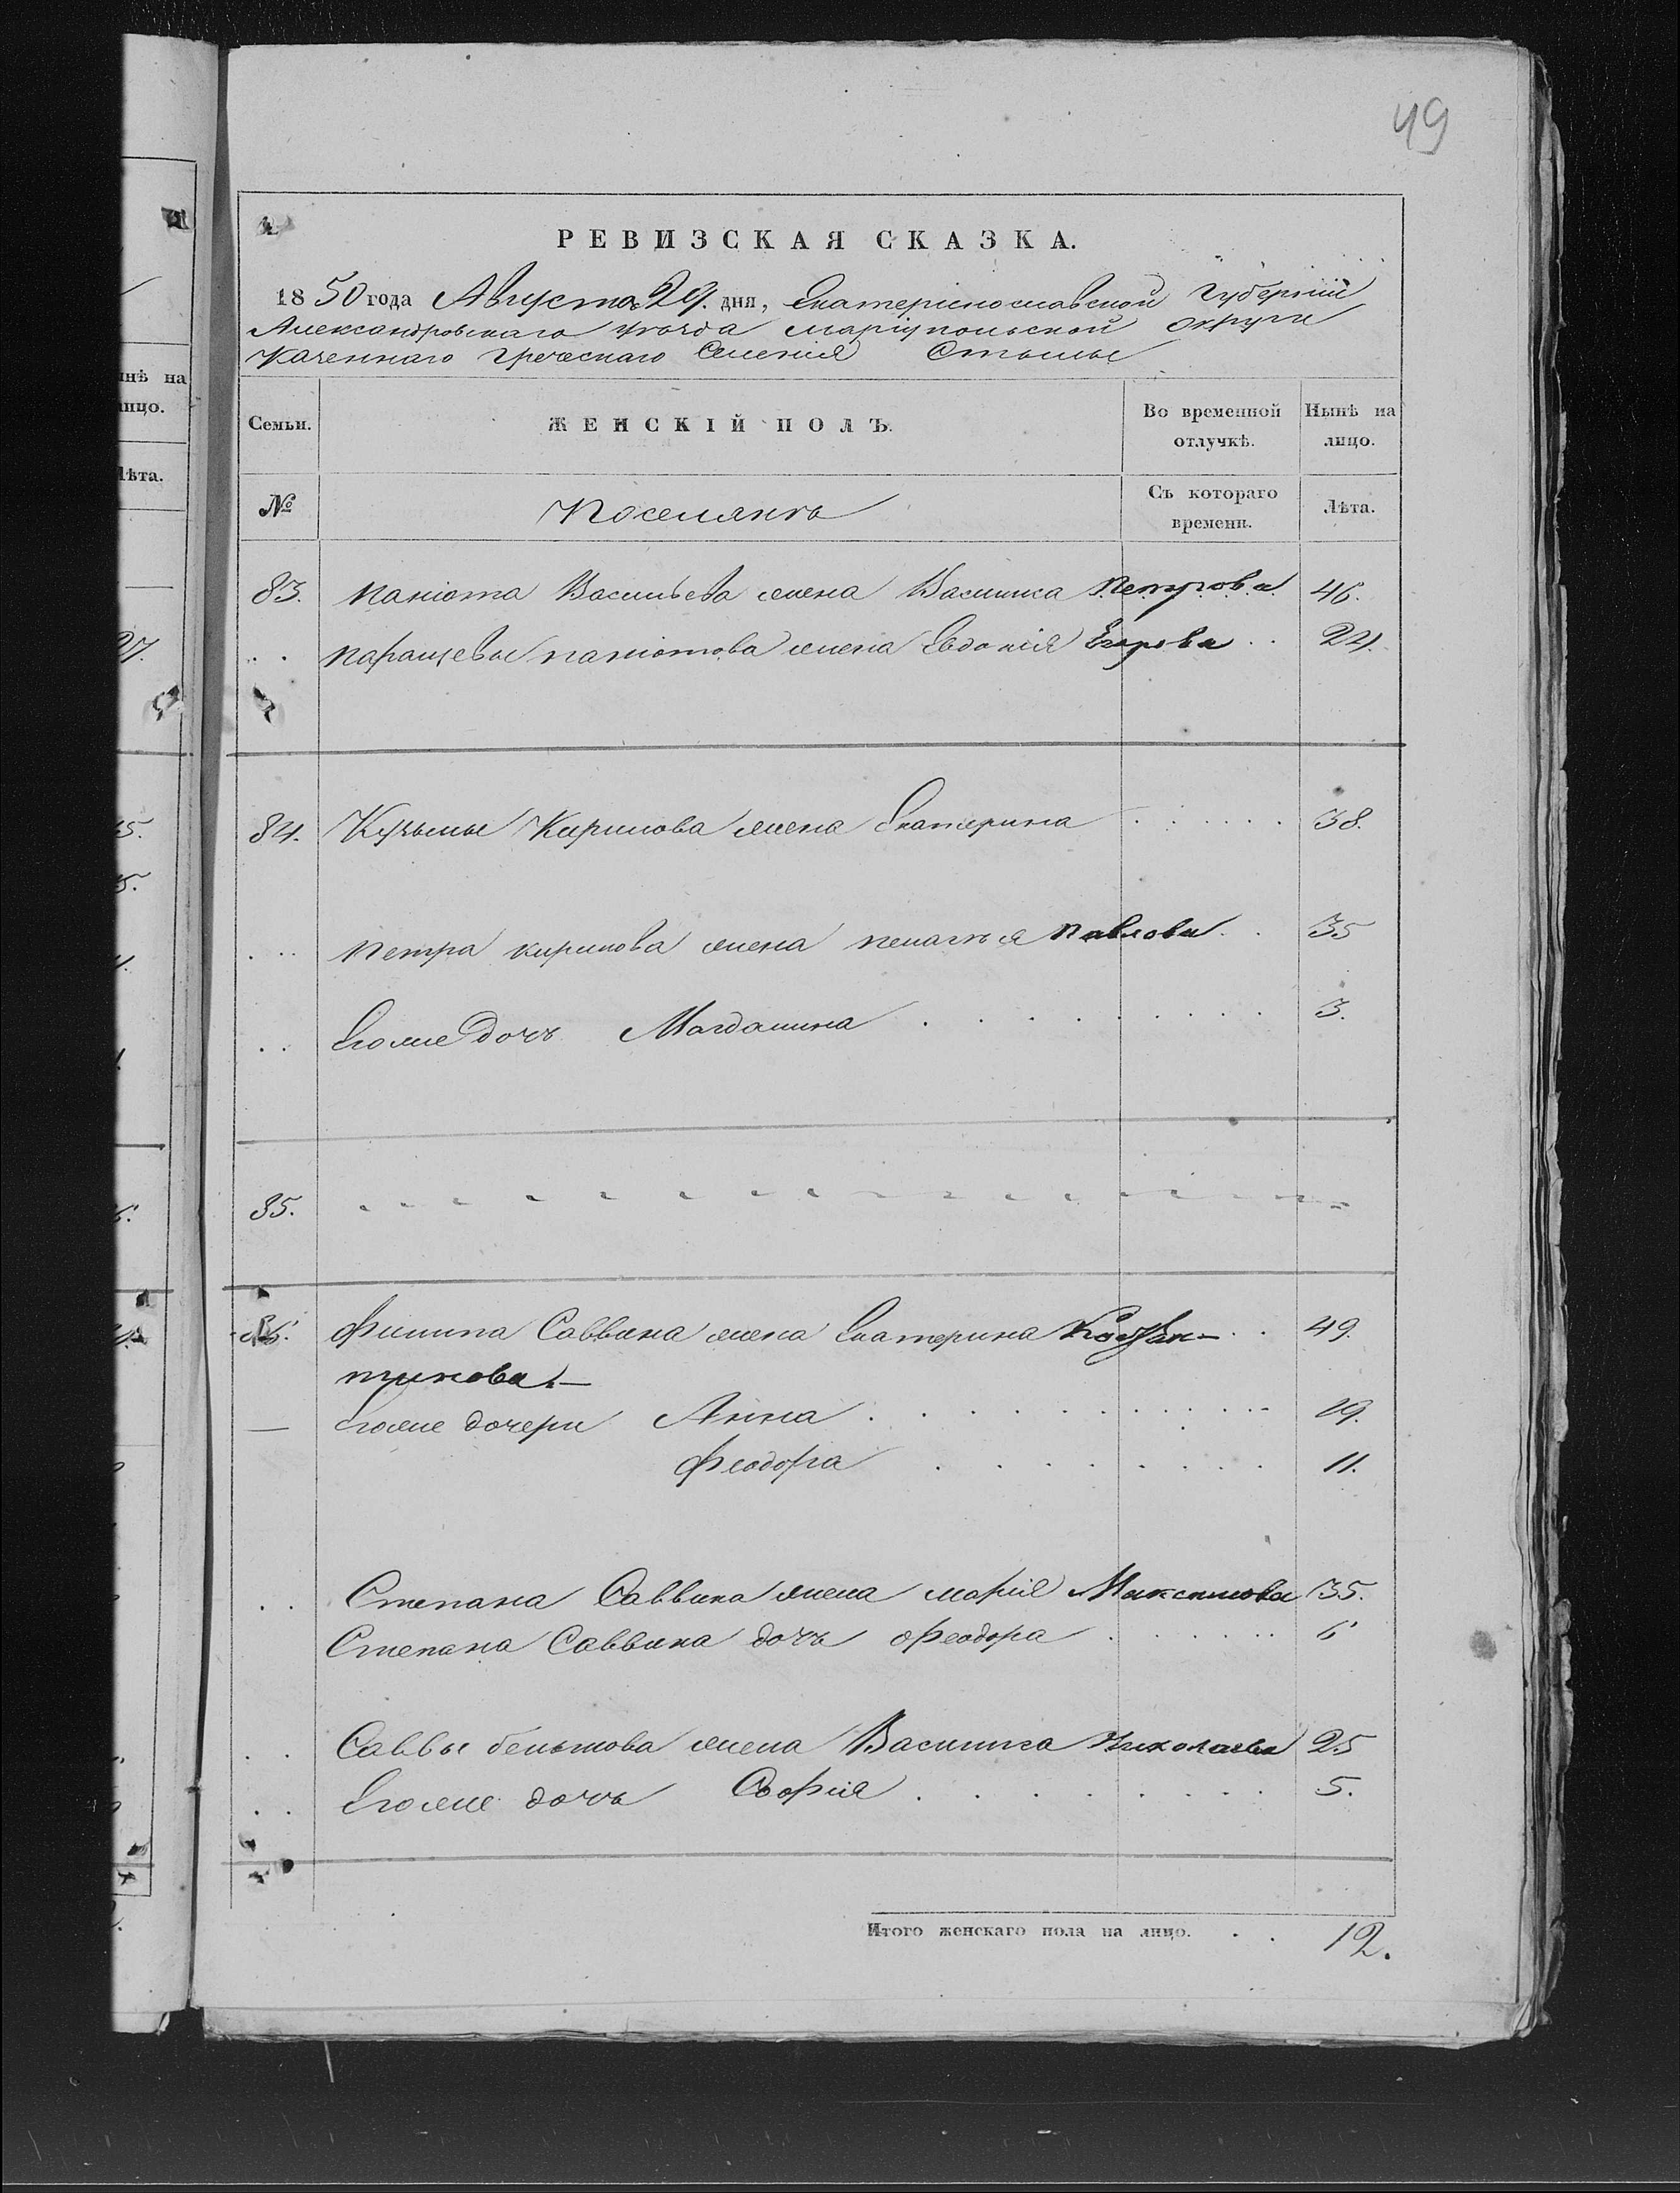 49
РЕВИЗСКАЯ СКАЗКА.
1850 года Августа 29. дня, Екатеринославской Губерніи
Александровскаго уѣзда Маріупольской округи
Казеннаго Греческаго Селенія Стылы
Семьи. ЖЕНСКІЙ ПОЛЪ. Во временной отлучкѣ. Нынѣ на лицо.
№ Поселянъ Съ котораго времени. Лѣта.
83. Паніота Васильева жена Василиса Петрова 46.
Паращевы паніотова жена Евдокія Егорова 24.
84. Кузьмы Кирилова жена Екатерина 38.
Петра кирилова жена пелагѣя Павлова 35
Егоже Дочь Магдалина 3.
85.
86. Филипа Саввина жена Екатерина Констан- 49.
тинова.
Егоже дочери Анна 19.
Феодора 11.
Степана Саввина жена марія Максимова 35.
Степана Саввина дочь Феодора 6
Саввы жена Василиса Николаева 25
Егоже дочь Софія 5.
Итого женскаго пола на лицо. 12.
нѣ на
лицо.
Лѣта.
27.